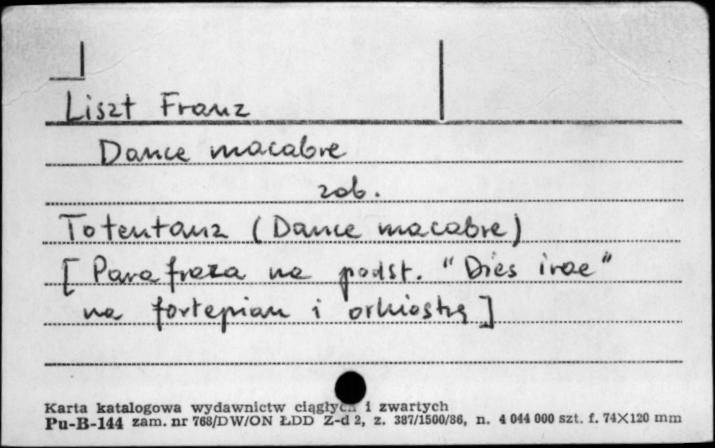 Liszt Franz
Dance macabre
zob.
Totentanz (Dance macabre)
[Parafraza na podst. "Dies irae"
na fortepian i orkiestrę]
Karta katalogowa wydawnictw ciągłych i zwartych
Pu-B-144 zam. nr 768/DW/ON ŁDD Z-d 2, z. 387/1500/86, n. 4 044 000 szt. f. 74×120 mm